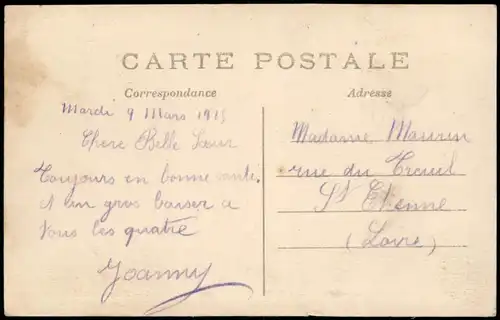 CARTE POSTALE
Correspondance
Adresse
Mardi 9 Mars 1915
Chere Belle Sœur
Toujours en bonne santé.
A un gros baiser a
tous les quatre
Joanny
Madame Maurin
rue du Treuil
St Etienne
(Loire)